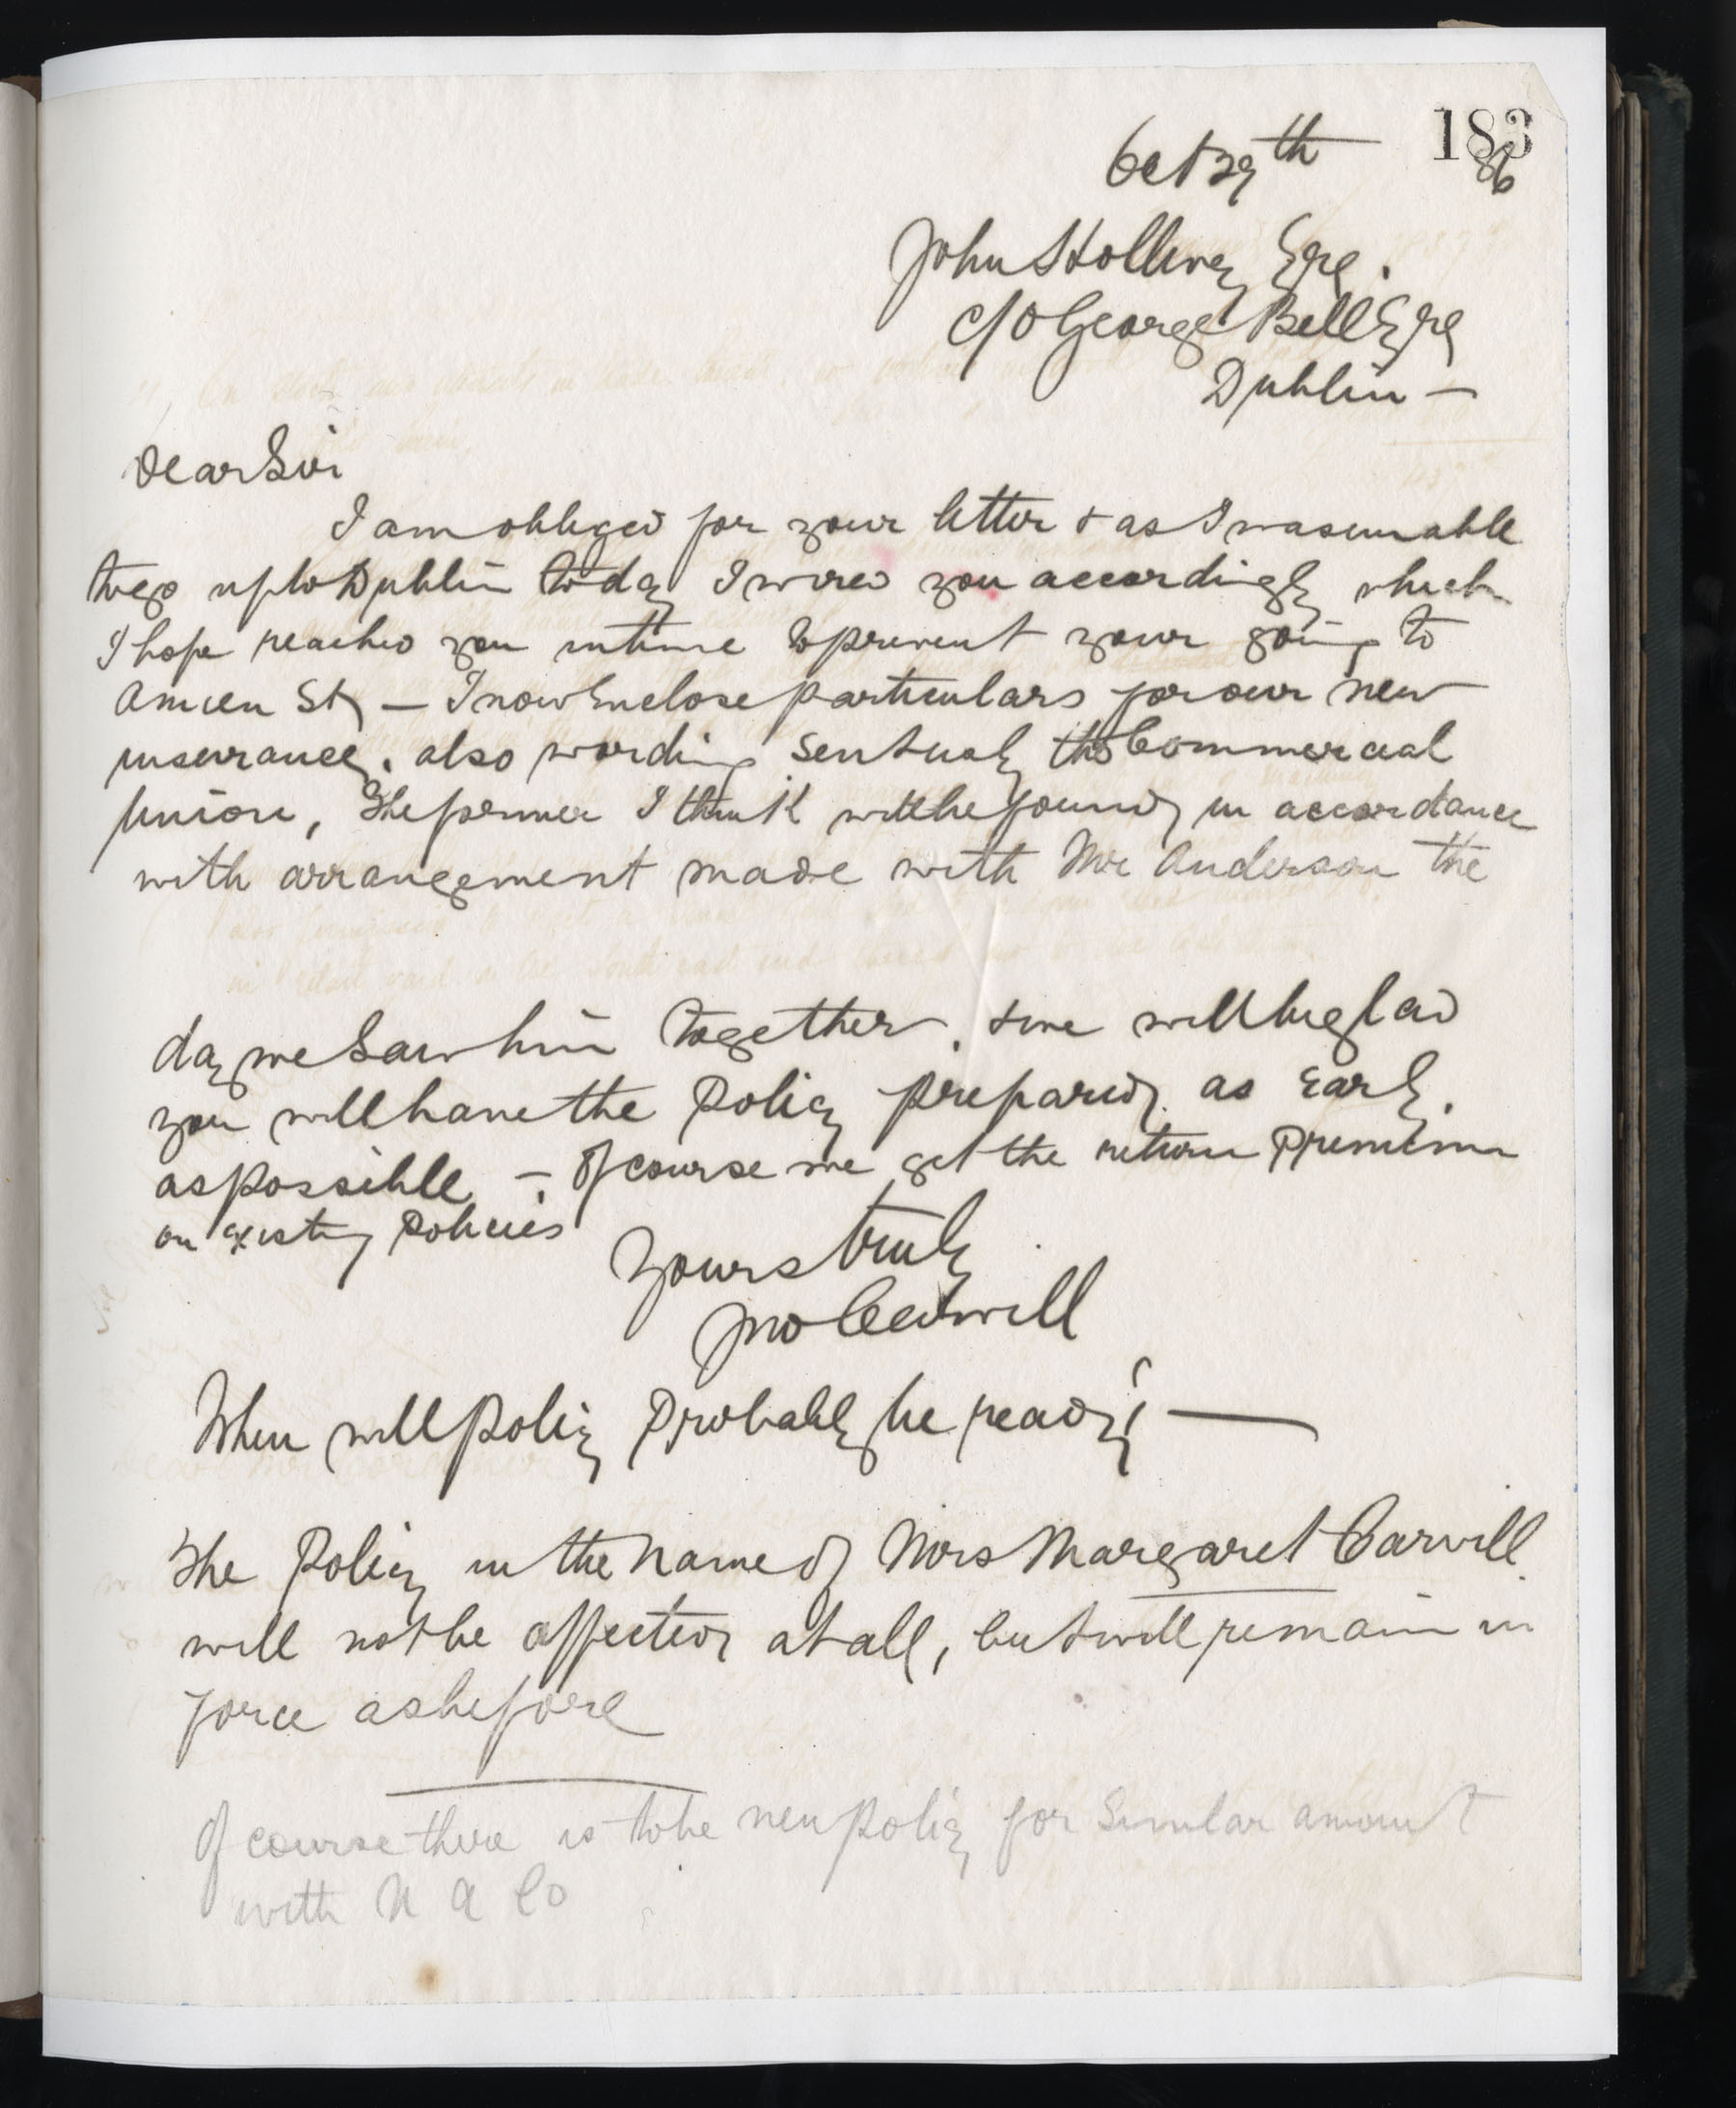 183
Oct 29th 86
John Hollwey Esqe.
c/o George Bell Esqe
Dublin —
Dear Sir
I am obliged for your letter & as I was unable
to go up to Dublin today I wired you accordingly which
I hope reached you in time to prevent your going to
Amien St, — I now Enclose particulars for our new
insurance, also wording sent us by the Commercial
Union, The former I think will be found in accordance
with arrangement made with Mr Anderson the
day we Saw him together. & we will be glad
you will have the Policy prepared as Early
as possible —. Of course we get the return Premium
on existing Policies
Yours truly
Jno Carvill
When will Policy Probably be ready? —
The Policy in the name of Mrs Margaret Carvill
will not be affected at all, but will remain in
force as before
Of course there is to be new Policy for Similar amount
with N A Co